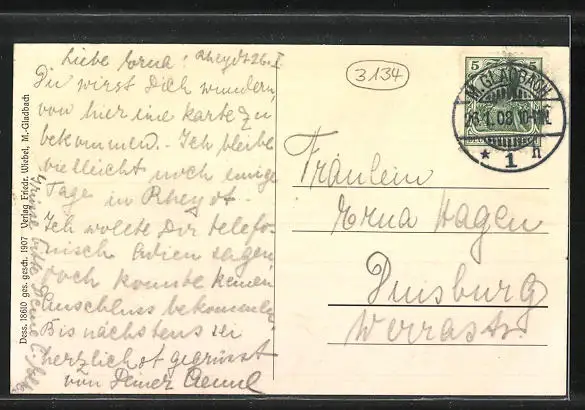 Liebe Erna! Rheydt 26. I.
Du wirst Dich wundern,
von hier eine Karte zu
bekommen. Ich bleibe
vielleicht noch einige
Tage in Rheydt.
Ich wollte Dir telefo-
nisch Adieu sagen
doch konnte keinen
Anschluss bekommen.
Bis nächstens sei
herzlichst gegrüsst
von Deiner
Grüsse bitte Deine
Dess. 18610 ges. gesch. 1907 Verlag Friedr. Wiebel, M.-Gladbach
3134
5 5
M. GLADBACH
26.1.08 10-11V.
* 1 n
Fräulein
Erna Hagen
Duisburg
Werrastr.